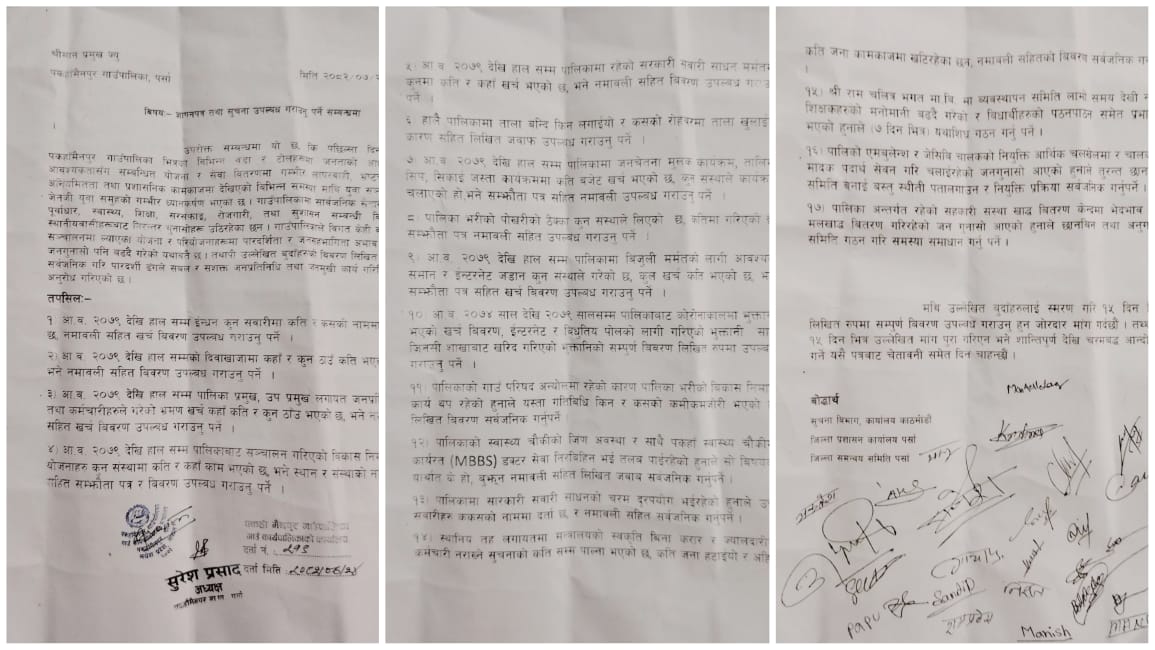 श्रीमान प्रमुख ज्यु
पकहामैनपुर गाउँपालिका, पर्सा
मिति २०८२/०७/
बिषयः- ज्ञापनपत्र तथा सुचना उपलब्ध गराउनु पर्ने सम्बन्धमा
।
उपरोक्त सम्बन्धमा यो छ कि पछिल्ला दिन
पकहामैनपुर गाउँपालिका भित्रका बिभिन्न वडा र टोलहरुमा जनताको
आवश्यकतासंग सम्बन्धित योजना र सेवा बितरणमा गम्भीर लापरवाही, भ्रष्टा
अनियमितता तथा प्रशासनिक कामकाजमा देखिएको बिभिन्न समस्या माथि युवा
जेनजी युवा समुहको गम्भीर ध्यानाकर्षण भएको छ । गाउँपालिकामा सार्वजनिक
पुर्वाधार, स्वास्थ्य, शिक्षा, सरसफाई, रोजगारी, तथा सुशासन सम्बन्धी
स्थानीयवासीहरुबाट निरन्तर गुनासोहरु उठिरहेका छन । गाउँपालिकाले बिगत केही
सञ्चालनमा ल्याएका योजना र परियोजनाहरुमा पारदर्शीता र जनसहभागिता अभाव
जनगुनासो पनि बढदै गरेको यथावतै छ । तथापी उल्लेखित बुदाँहरुको बिवरण लिखित
सर्वजनिक गरि पारदर्शी ढंगले सबल र सशक्त जनप्रतिनिधि तथा जनमुखी कार्य गरिदि
अनुरोध गरिएको छ ।
तपसिलः–
१) आ.व. २०७९ देखि हाल सम्म ईन्धन कुन सवारीमा कति र कसको नाममा
छ, नमावली सहित खर्च बिवरण उपलब्ध गराउनु पर्ने ।
२) आ.व. २०७९ देखि हाल सम्मको दिवाखाजामा कहाँ र कुन ठाउँ कति भए
भने नमावली सहित बिवरण उपलब्ध गराउनु पर्ने ।
३) आ.व. २०७९ देखि हाल सम्म पालिका प्रमुख, उप प्रमुख लगायत जनप्र
तथा कर्मचारीहरुले गरेको भ्रमण खर्च कहाँ कति र कुन ठाँउ भएको छ, भने न
सहित खर्च बिवरण उपलब्ध गराउनु पर्ने ।
४) आ.व. २०७९ देखि हाल सम्म पालिकाबाट सञ्चालन गरिएको विकास नि
योजनाहरु कुन संस्थामा कति र कहाँ काम भएको छ, भने स्थान र संस्थाको ना
सहित सम्झौता पत्र र बिवरण उपलब्ध गराउनु पर्ने ।
गाउँ कार्यपालिकाको कार्यालय
दर्ता नं. २१९
दर्ता मिति
सुरेश प्रसाद
अध्यक्ष
५) आ.व. २०७९ देखि हाल सम्म पालिकामा रहेको सरकारी सवारी साधन मर्मतमा
कुनमा कति र कहाँ खर्च भएको छ, भने नमावली सहित बिवरण उपलब्ध गराउ
पर्ने ।
६) हालै पालिकामा ताला बन्दि किन लगाईयो र कसको रोहवरमा ताला खुलाई
कारण सहित लिखित जवाफ उपलब्ध गराउनु पर्ने ।
७) आ.व. २०७९ देखि हाल सम्म पालिकामा जनचेतना मुलक कार्यक्रम, तालि
सिप, सिकाई जस्ता कार्यक्रममा कति बजेट खर्च भएको छ, कुन संस्थाले कार्यक्र
चलाएको हो,भने सम्झौता पत्र सहित नमावली उपलब्ध गराउनु पर्ने ।
८) पालिका भरीको पोखरीको ठेक्का कुन संस्थाले लिएको छ, कतिमा गरिएको
सम्झौता पत्र नमावली सहित उपलब्ध गराउनु पर्ने ।
९) आ.व. २०७९ देखि हाल सम्म पालिकामा बिजुली मर्मतको लागी आवश्य
समान र ईन्टरनेट जडान कुन संस्थाले गरेको छ, कुल खर्च कति भएको छ, भ
सम्झौता पत्र सहित खर्च बिवरण उपलब्ध गराउनु पर्ने ।
१०) आ.व. २०७४ साल देखि २०७९ सालसम्म पालिकाबाट कोरोनाकालमा भुक्ता
भएको खर्च बिवरण, ईन्टरनेट र बिधुतिय पोलको लागी गरिएको भुक्तानी सा
जिनसी शाखाबाट खरिद गरिएको भुक्तानिको सम्पुर्ण बिवरण लिखित रुपमा उपलब
गराउनु पर्ने ।
११) पालिकाको गाउँ परिषद अन्योलमा रहेको कारण पालिका भरीको बिकास निर्मा
कार्य थप रहेको हुनाले यस्ता गतिबिधि किन र कसको कमीकमजोरी भएको
लिखित बिवरण सर्वजनिक गर्नुपर्ने ।
१२) पालिकाको स्वास्थ्य चौकीको जिर्ण अवस्था र साथै पकहाँ स्वास्थ्य चौकी
कार्यरत (MBBS) डक्टर सेवा तिरबिहिन भई तलब पाईरहेको हुनाले सो बिषय
यार्थात के हो, बुझ्न नमावली सहित लिखित जवाय सर्वजनिक गर्नुपर्ने ।
१३) पालिकामा सारकारी सवारी साधनको चरम दुरपयोग भईरहेको हुनाले उ
सवारीहरु ककसको नाममा दर्ता छ, र नमावली सहित सर्वजनिक गर्नुपर्ने ।
१४) स्थानिय तह लगायतमा मन्त्रालयको स्वकृति बिना करार र ज्यालादारी
कर्मचारी नराख्ने सुचनाको कति सम्म पाल्ना भएको छ, कति जना हटाईयो र अहि
कति जना कामकाजमा खटिरहेका छन, नमावली सहितको बिवरण सर्वजनिक गर्न
।
१५) श्री राम चलित्र भगत मा.बि. मा व्यवस्थापन समिति लामो समय देखी न
शिक्षकहरुको मनोमानी बढदै गरेको र बिधार्थीहरुको पठनपाठन समेत प्रभा
भएको हुनाले (७ दिन भित्र) यथाशिध्र गठन गर्नु पर्ने ।
१६) पालिको एमबुलेन्श र जेसिबि चालकको नियुक्ति आर्थिक चलखेलमा र चाल
मादक पदार्थ सेवन गरि चलाईरहेको जनगुनासो आएको हुनाले तुरन्त छान
समिति बनाई बस्तु स्थीती पतालगाउन र नियुक्ति प्रक्रिया सर्वजनिक गर्नुपर्ने ।
१७) पालिका अन्तर्गत रहेको सहकारी संस्था खाद्ध बितरण केन्द्रमा भेदभाव
मलखाद्ध बितरण गरिरहेको जन गुनासो आएको हुनाले छानबिन तथा अनुग
समिति गठन गरि समस्या समाधान गर्नु पर्ने ।
माथि उल्लेखित बुदाँहरुलाई स्मरण गरि १५ दिन
लिखित रुपमा सम्पुर्ण बिवरण उपलब्ध गराउनु हुन जोरदार मांग गर्दछौ । तथ
१५ दिन भित्र उल्लेखित मांग पुरा गरिएन भने शान्तिपुर्ण देखि चरमबद्ध आन्दो
गर्ने यसै पत्रबाट चेतावनी समेत दिन चाहन्छौ ।
बोद्धार्थ
सुचना बिभाग, कार्यालय काठमाडौ
जिल्ला प्रशासन कार्यालय पर्सा
जिल्ला समन्वय समिति पर्सा
PAPU
Sandip
Manish